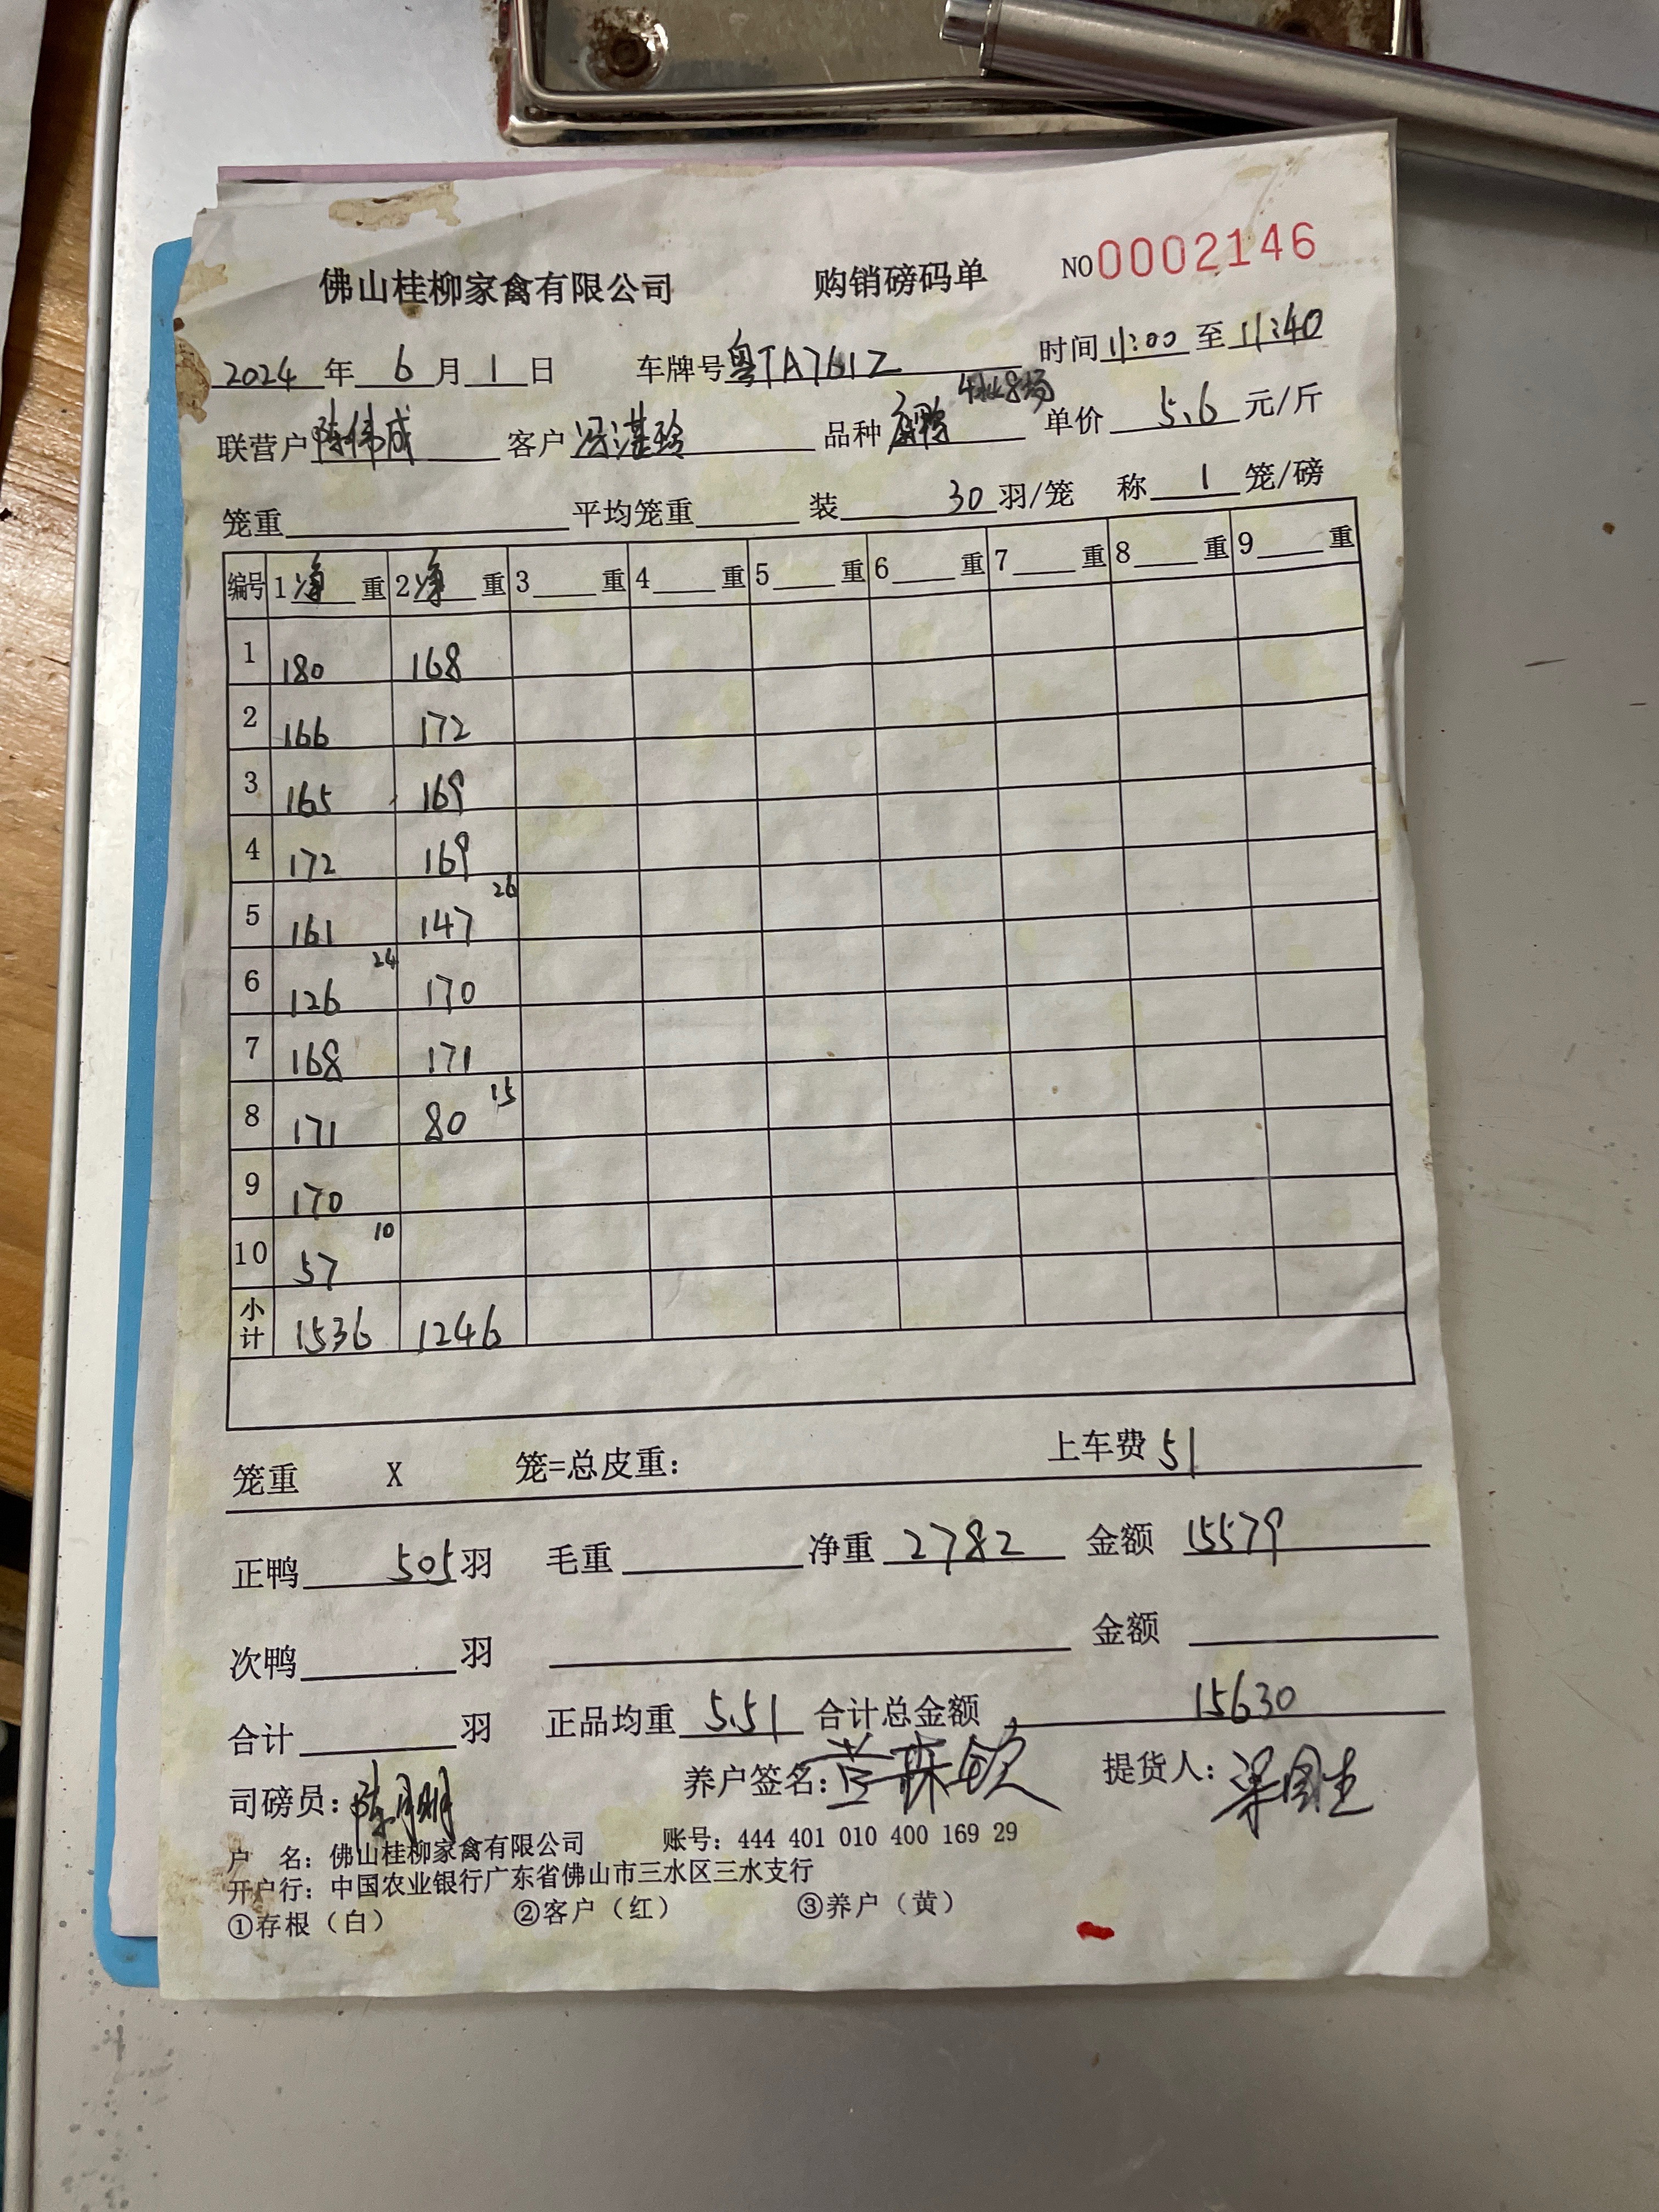 佛山桂柳家禽有限公司 购销磅码单 NO 0002146
2024 年 6 月 1 日 车牌号 粤TA761Z 时间 11:00 至 11:40
联营户 陈伟成 客户 冯湛玲 品种 单价 5.6 元/斤
笼重 平均笼重 装 30 羽/笼 称 1 笼/磅
编号 1 净 重 2 净 重 3 重 4 重 5 重 6 重 7 重 8 重 9 重
1 180 168
2 166 172
3 165 169
4 172 169
5 161 147 26
6 126 24 170
7 168 171
8 171 80 15
9 170
10 57 10
小计 1536 1246
笼重 X 笼=总皮重: 上车费 51
正鸭 505 羽 毛重 净重 2782 金额 15579
次鸭 羽 金额
合计 羽 正品均重 5.51 合计总金额 15630
司磅员: 养户签名: 提货人:
户 名: 佛山桂柳家禽有限公司 账号: 444 401 010 400 169 29
开户行: 中国农业银行广东省佛山市三水区三水支行
①存根（白） ②客户（红） ③养户（黄）